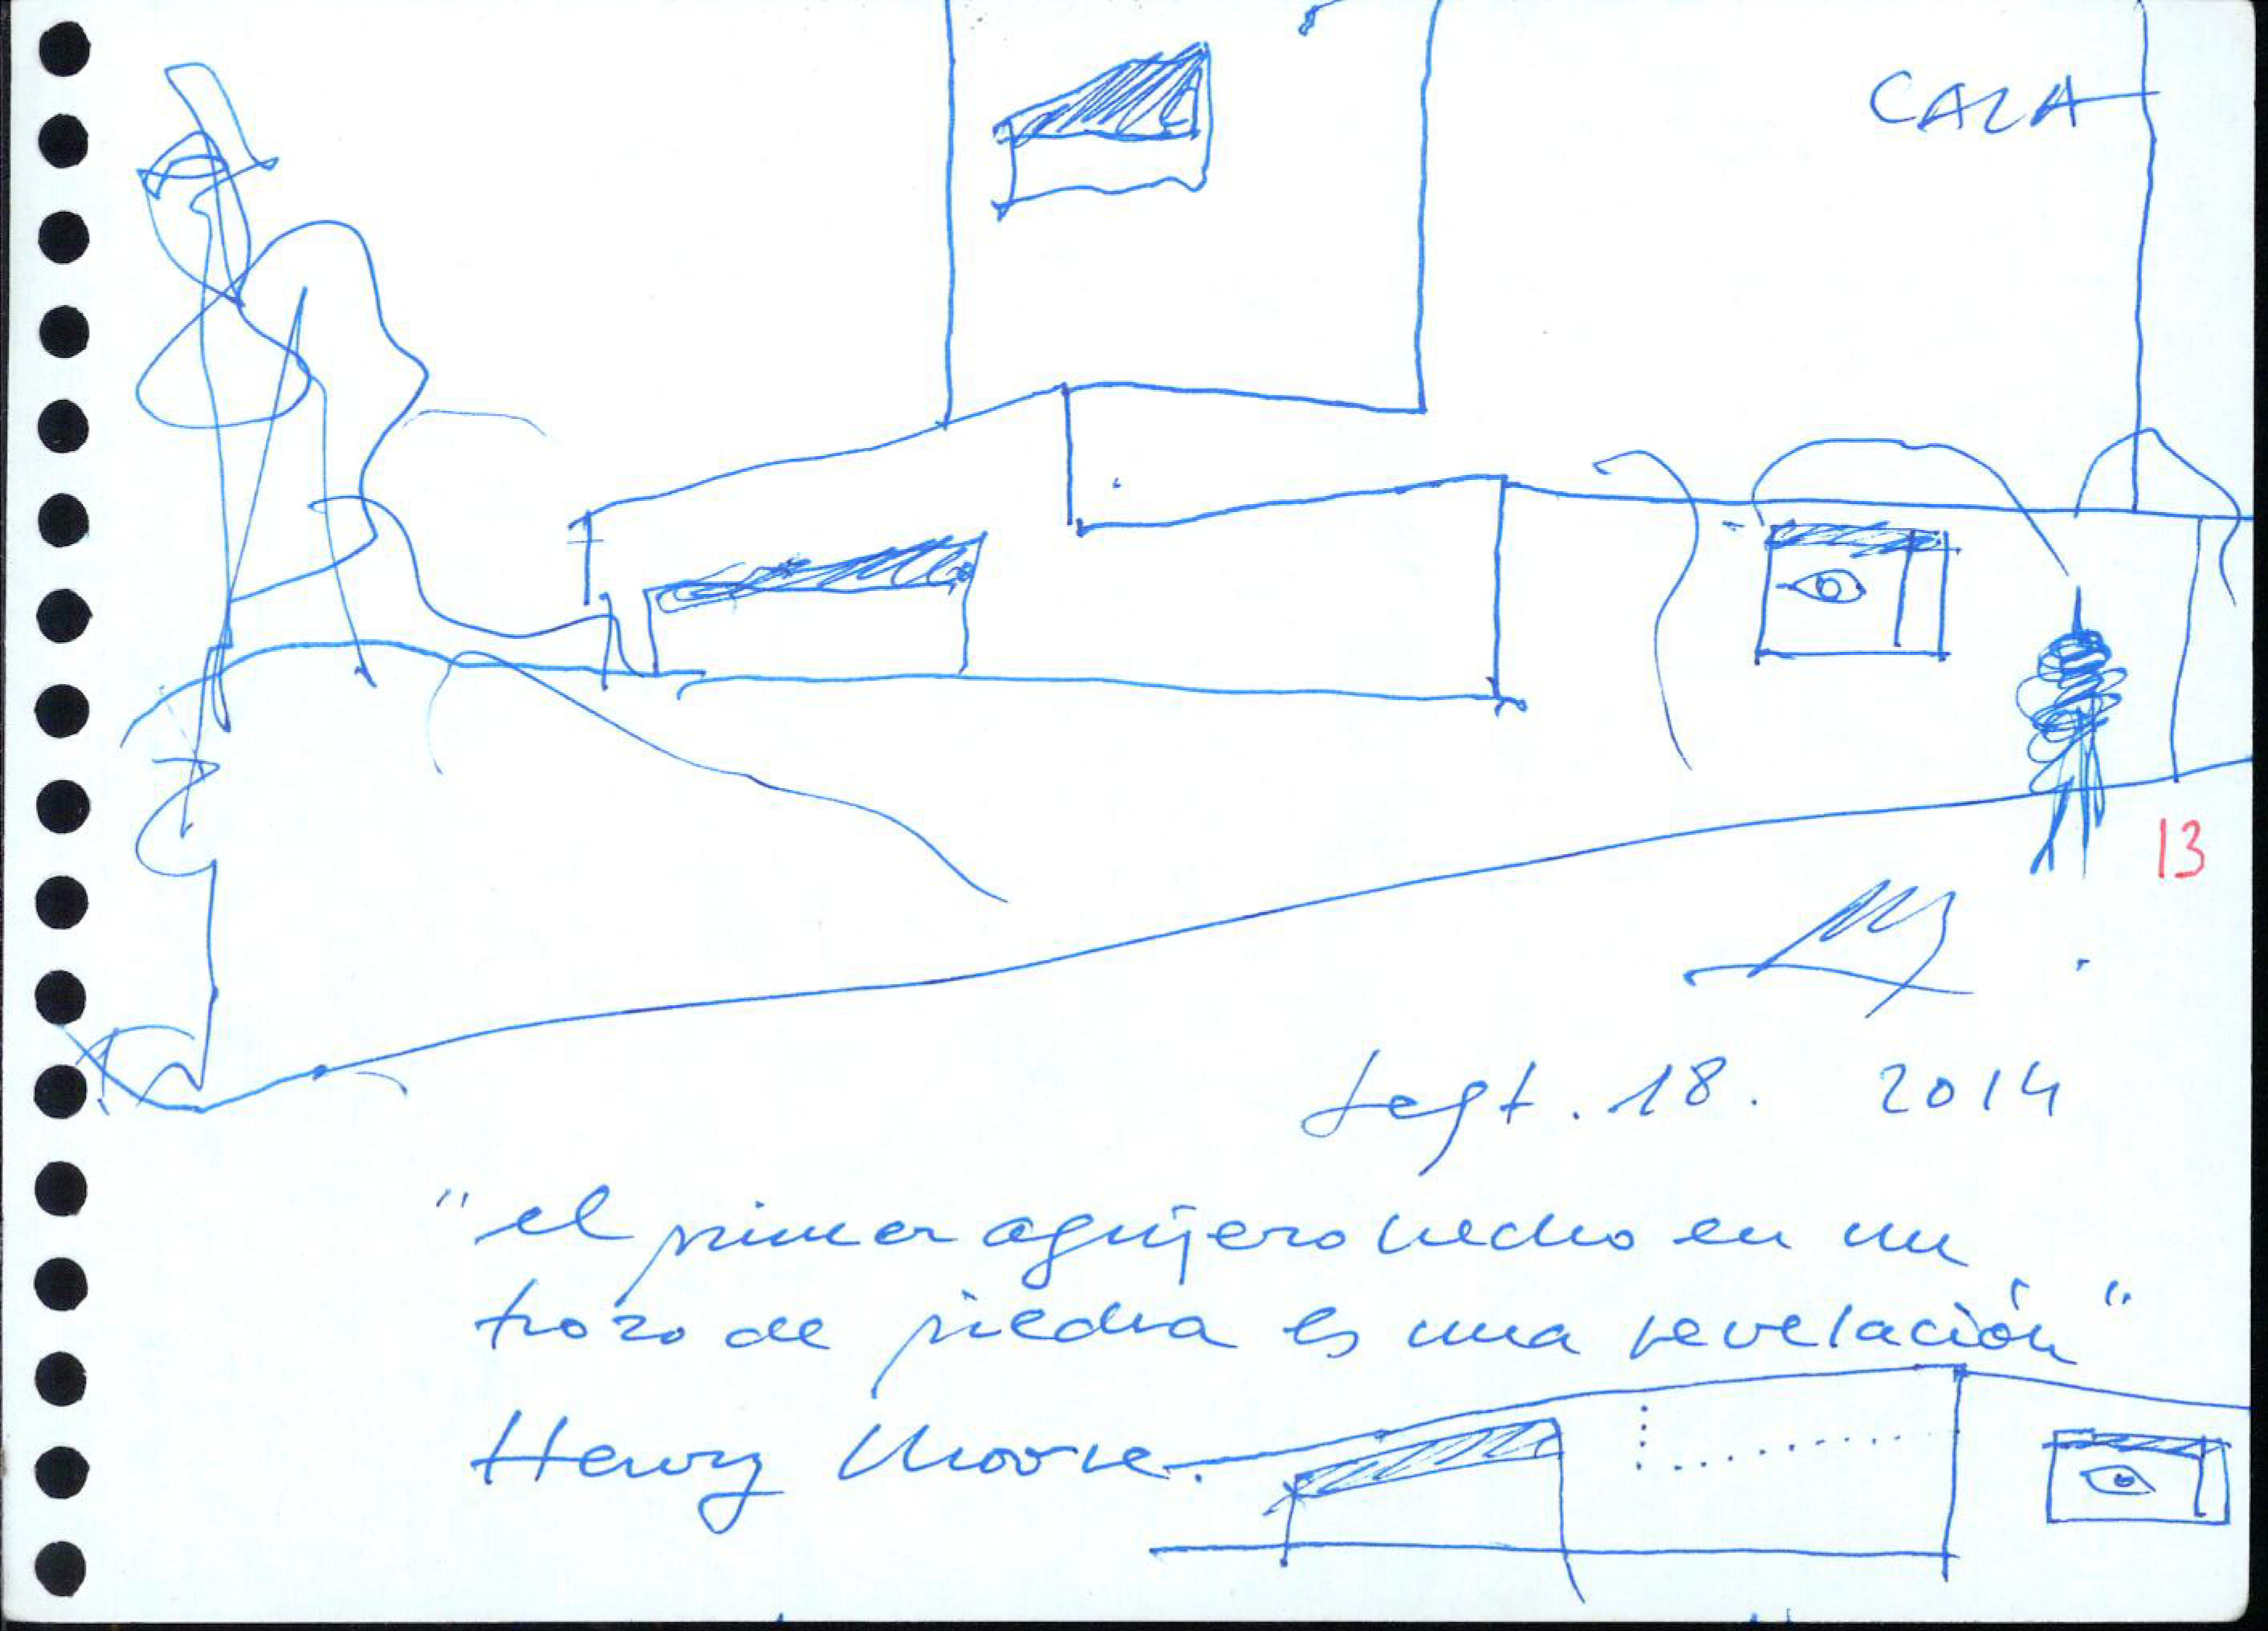 CALA
13
Sept. 18. 2014
"el primer agujero hecho en un
trozo de piedra es una revelación"
Henry Moore.